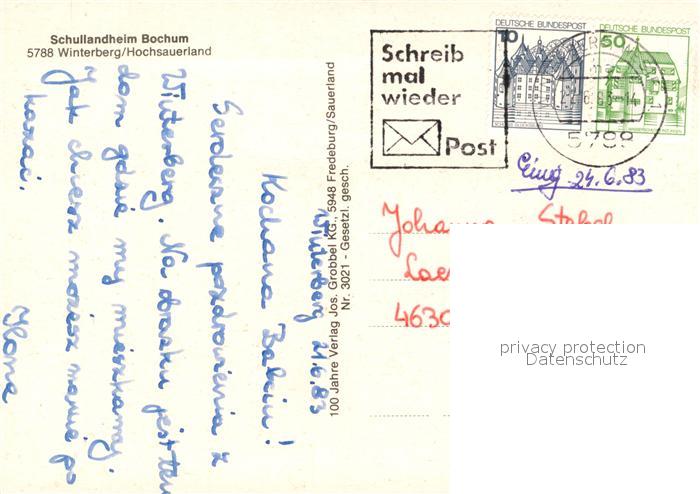 Schullandheim Bochum
5788 Winterberg/Hochsauerland
Winterberg 21.6.83
Kochana Babciu!
Serdeczne pozdrowienia z
Winterberg. Na obrazku jest ten
dom gdzie my mieszkamy.
Jak chcesz możesz mamie po
kazać.
Ilona
100 Jahre Verlag Jos. Grobbel KG., 5948 Fredeburg/Sauerland
Nr. 3021 - Gesetzl. gesch.
Schreib
mal
wieder
Post
DEUTSCHE BUNDESPOST
10
DEUTSCHE BUNDESPOST
50
5788
Eing. 24.6.83
4630
privacy protection
Datenschutz